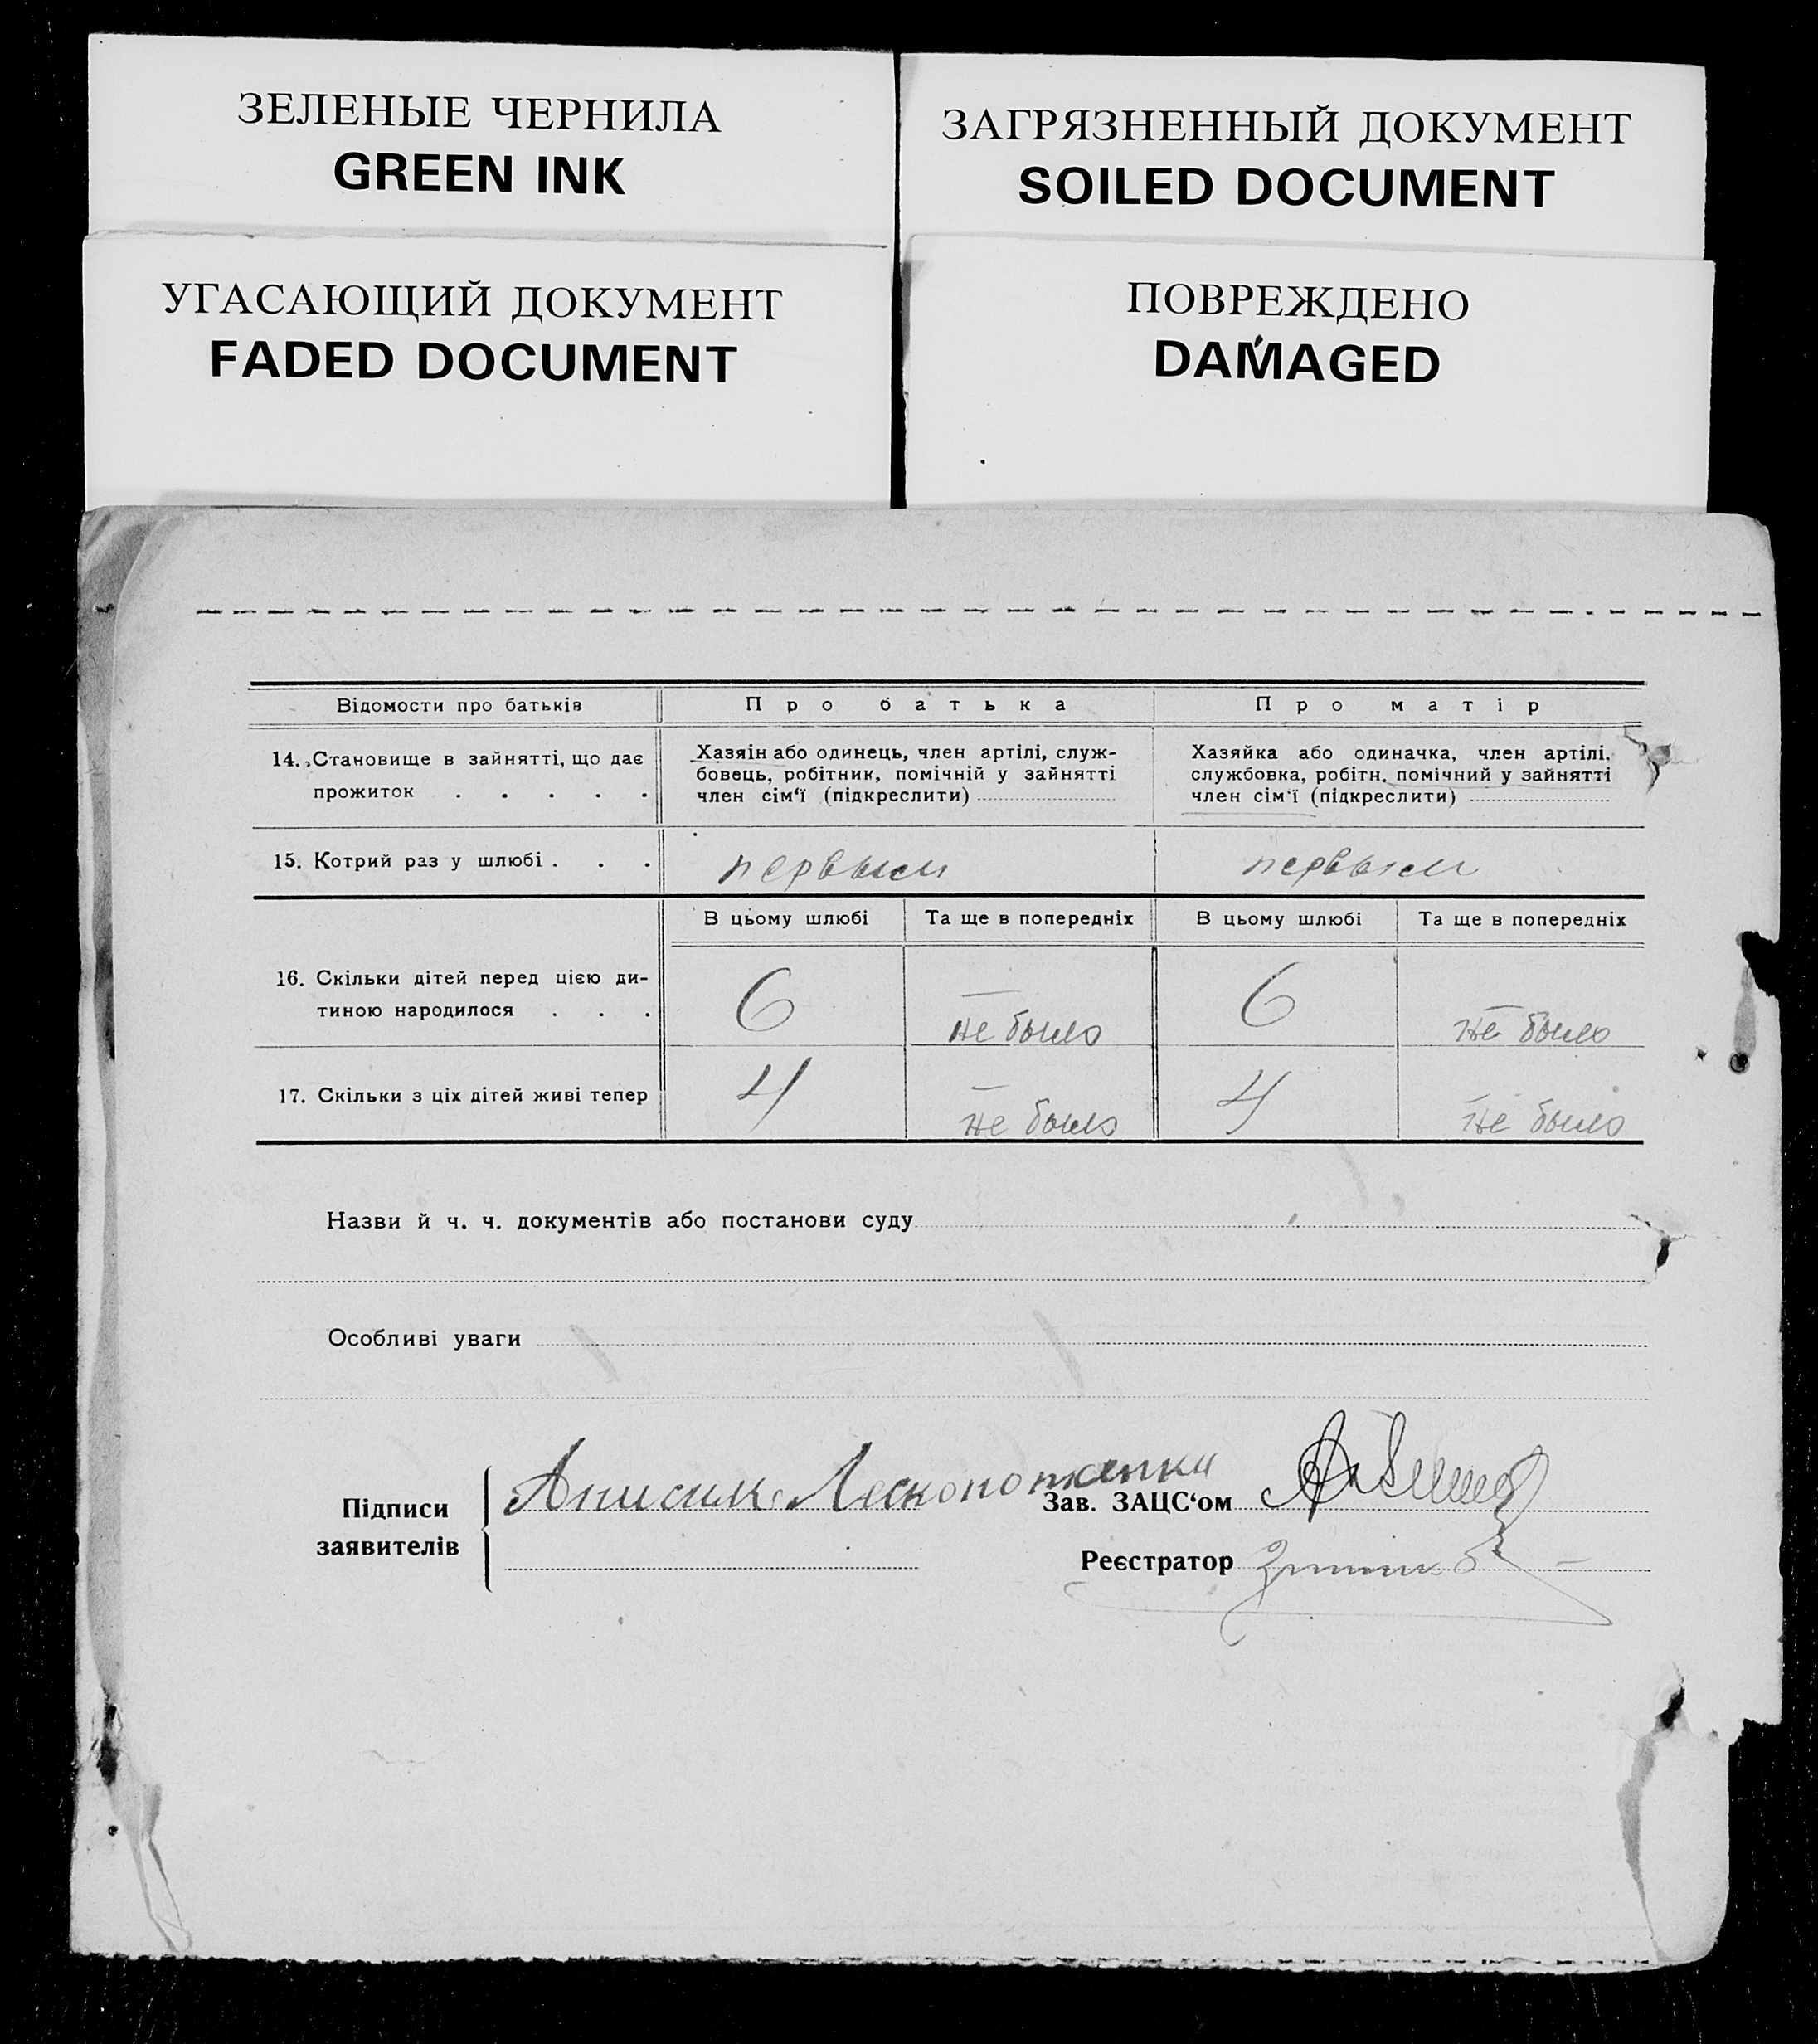 ЗЕЛЕНЫЕ ЧЕРНИЛА
GREEN INK
ЗАГРЯЗНЕННЫЙ ДОКУМЕНТ
SOILED DOCUMENT
УГАСАЮЩИЙ ДОКУМЕНТ
FADED DOCUMENT
ПОВРЕЖДЕНО
DAMAGED
Відомости про батьків
Про батька
Про матір
14. Становище в зайнятті, що дає
прожиток . . . . .
Хазяін або одинець, член артілі, служ-
бовець, робітник, помічній у зайнятті
член сім'ї (підкреслити)
Хазяйка або одиначка, член артілі,
службовка, робітн. помічний у зайнятті
член сім'ї (підкреслити)
15. Котрий раз у шлюбі . . .
первым
первым
В цьому шлюбі
Та ще в попередніх
В цьому шлюбі
Та ще в попередніх
16. Скільки дітей перед цією ди-
тиною народилося . . .
6
не было
6
не было
17. Скільки з ціх дітей живі тепер
4
не было
4
не было
Назви й ч. ч. документів або постанови суду
Особливі уваги
Підписи
заявителів
Зав. ЗАЦС'ом
Реєстратор